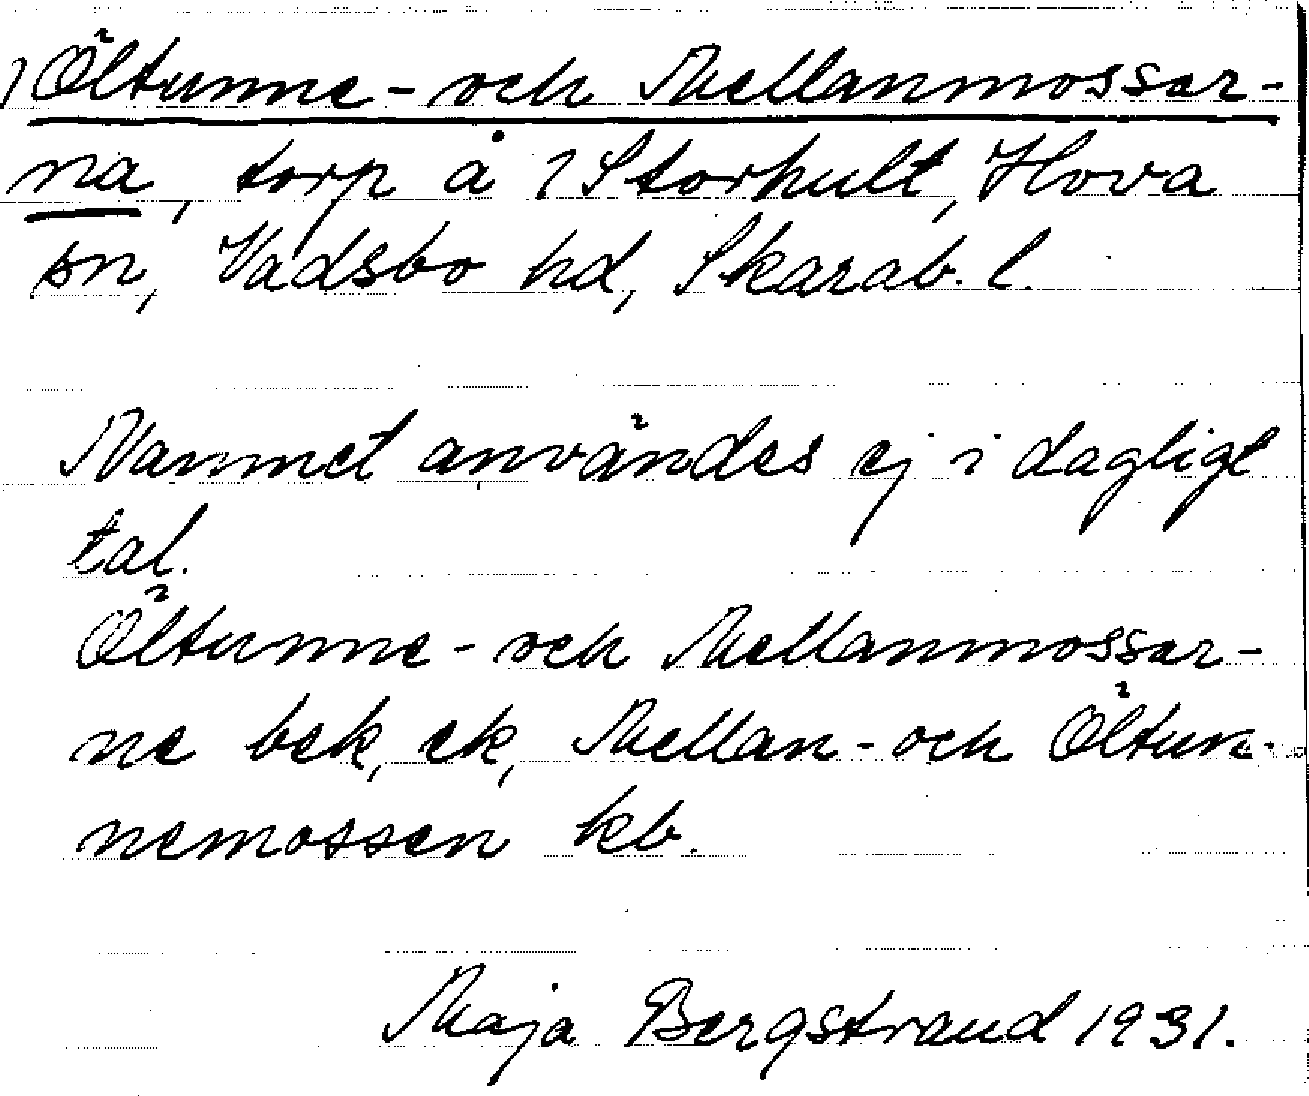 1 Öltunne- och Mellanmossar-
na, torp å 1 Storhult, Hova
sn, Vadsbo hd, Skarab. l.
Namnet användes ej i dagligt
tal.
Öltunne- och Mellanmossar-
ne bek, ek, Mellan- och Öltun-
nemossen kb.
Maja Bergstrand 1931.